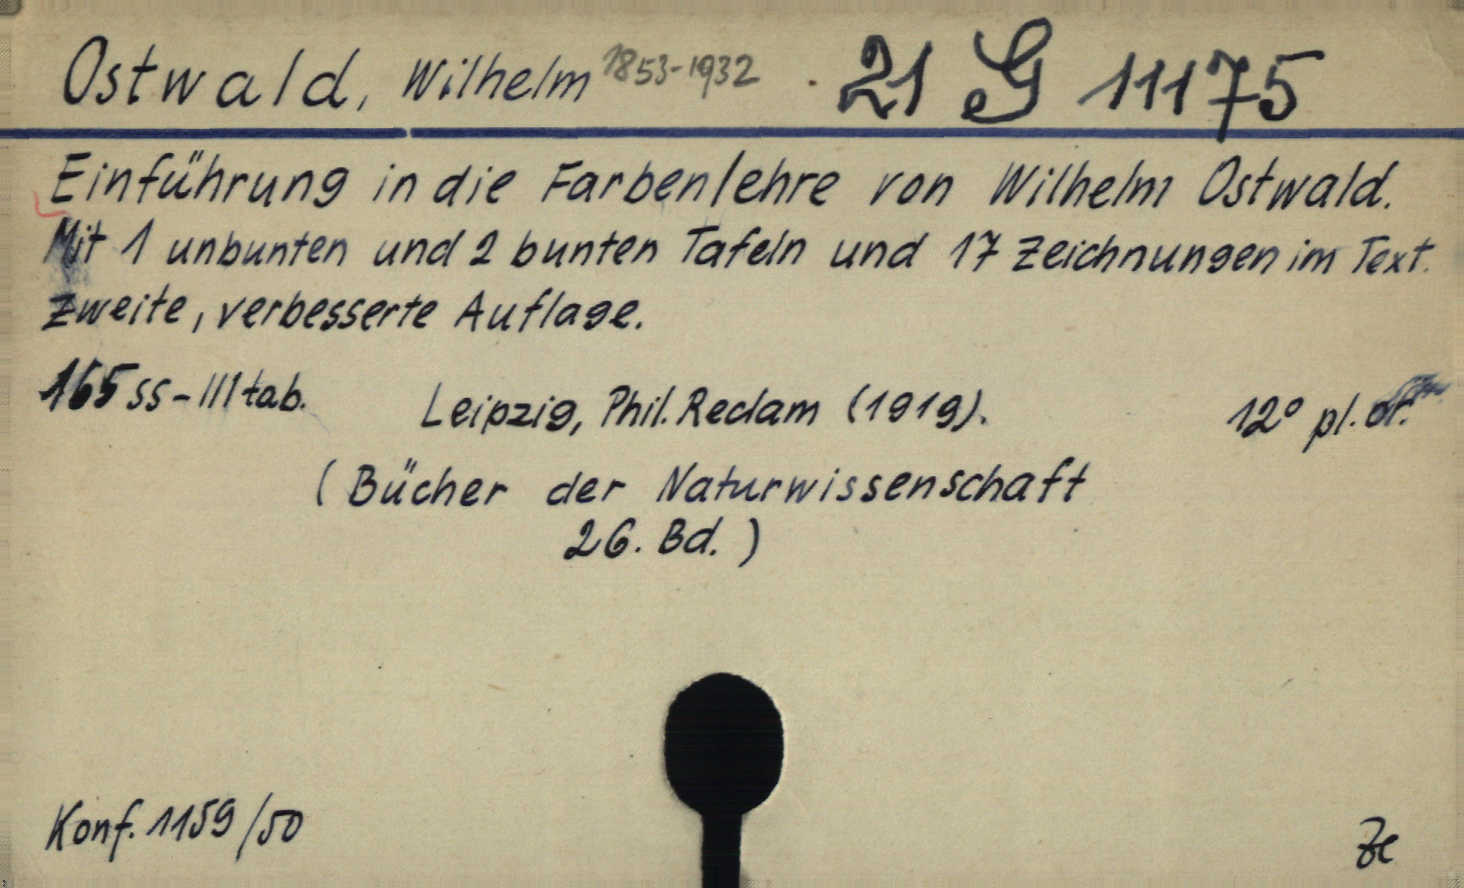 Ostwald, Wilhelm 1853-1932 21 G 11175
Einführung in die Farbenlehre von Wilhelm Ostwald.
Mit 1 unbunten und 2 bunten Tafeln und 17 Zeichnungen im Text.
Zweite, verbesserte Auflage.
165 ss - III tab. Leipzig, Phil. Reclam (1919). 12° pl. or.
(Bücher der Naturwissenschaft
26. Bd.)
Konf. 1159/50 Ze